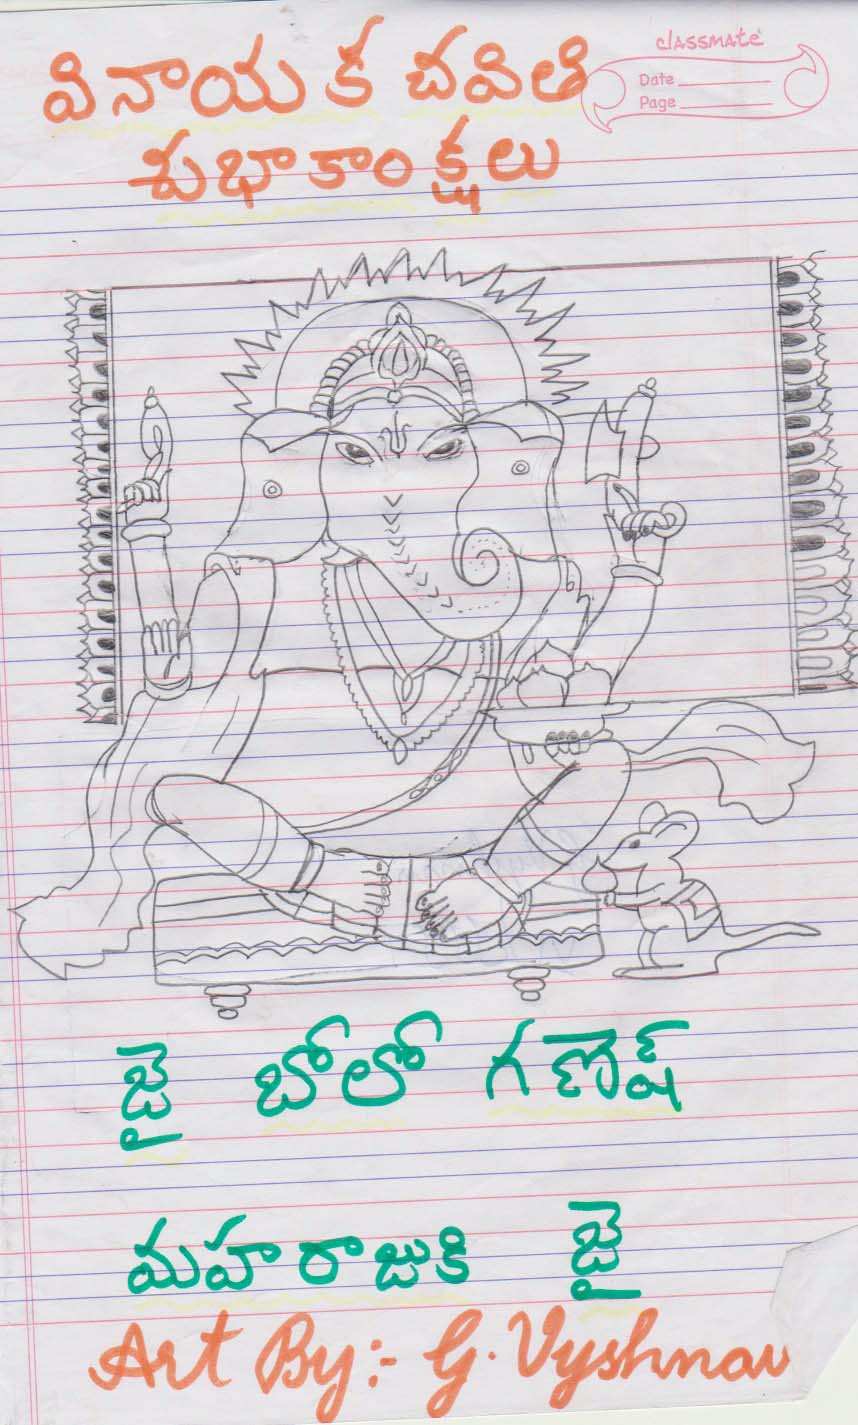 classmate
Date
Page
వినాయక చవితి
శుభాకాంక్షలు
జై బోలో గణేష్
మహరాజుకి జై
Art By:- G. Vyshnav